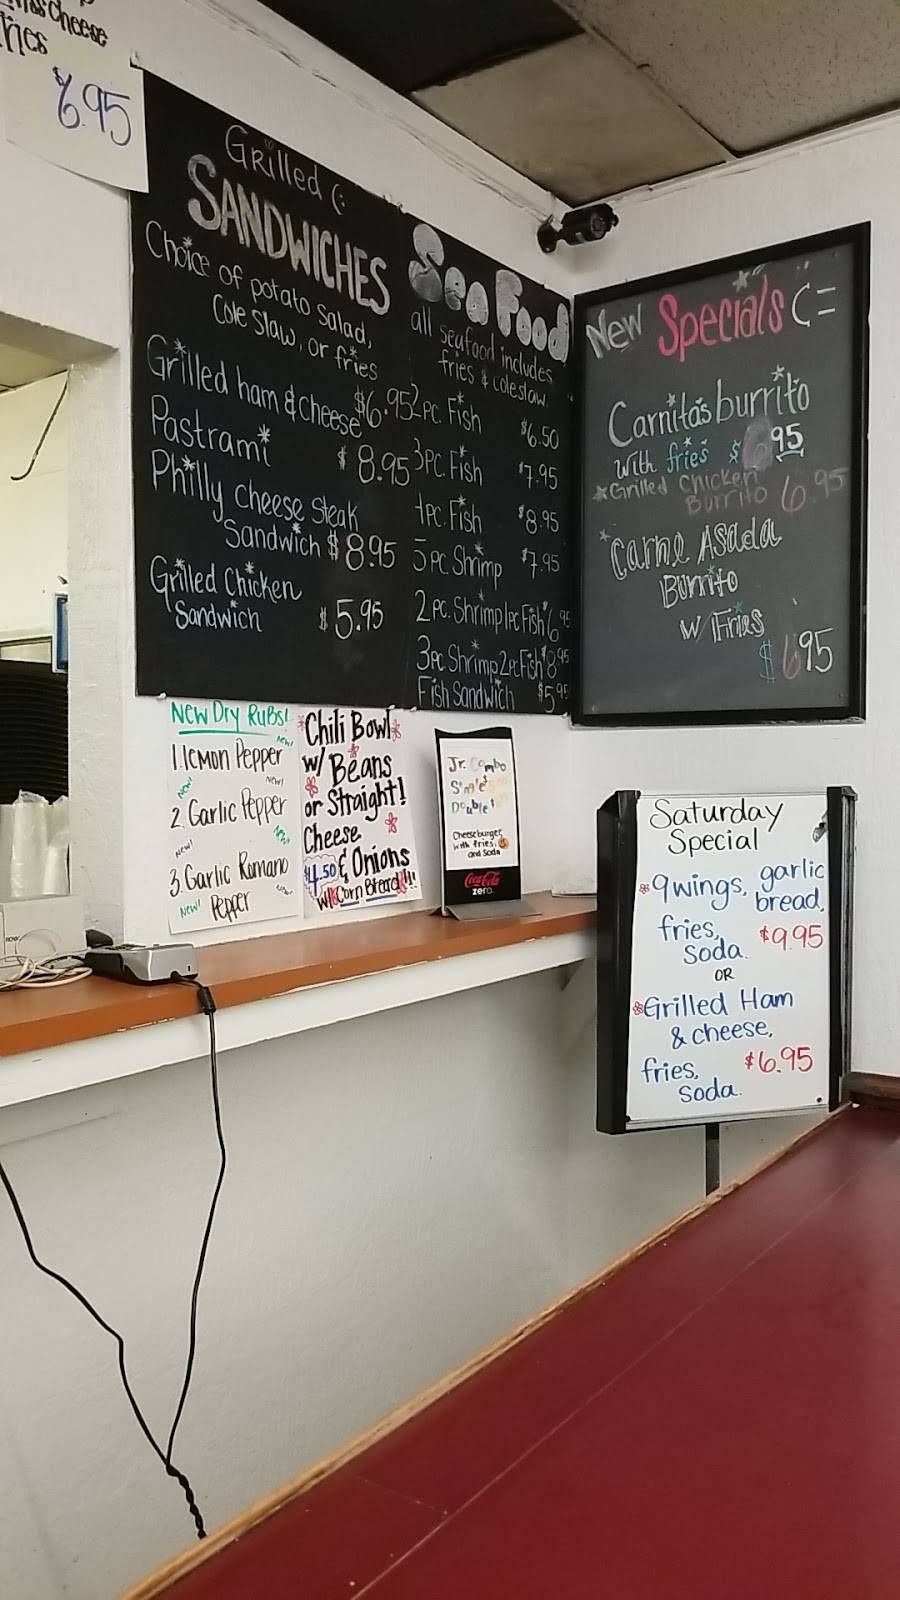 Cheese
fries
$6.95
Grilled (:
SANDWICHES
Choice of potato salad,
Cole slaw, or fries
Grilled ham & Cheese $6.95
Pastrami $8.95
Philly Cheese Steak
Sandwich $8.95
Grilled Chicken
Sandwich $5.95
Sea Food
all seafood includes
fries & coleslaw.
2pc. Fish $6.50
3pc. Fish $7.95
4pc. Fish $8.95
5pc. Shrimp $7.95
2pc. Shrimp 1pc Fish $6.95
3pc. Shrimp 2pc Fish $8.95
Fish Sandwich $5.95
New Specials (=
Carnitas burrito
with fries $6.95
Grilled Chicken
Burrito 6.95
Carne Asada
Burrito
w/ Fries
$6.95
New Dry Rubs!
1. lemon Pepper New!
New!
2. Garlic Pepper New!
New!
New!
3. Garlic Romano
Pepper New!
New!
Chili Bowl
w/ Beans
or Straight!
Cheese
$4.50 & Onions
w/ Corn Bread!!!
Jr. Combo
Single
Double
Cheeseburger,
with fries,
and soda
Coca-Cola
zero
Saturday
Special
9 wings, garlic
bread,
fries,
soda. $9.95
OR
Grilled Ham
& cheese,
fries, $6.95
soda.